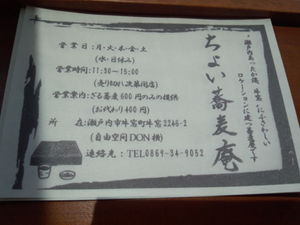 瀬戸内あったか横、牛窓にふさわしい
ロケーションに建つ蕎麦庵です
ちょい蕎麦庵
営業日:月・火・木・金・土
(水・日休み)
営業時間:11:30~15:00
(売り切れ次第閉店)
営業案内:ざる蕎麦600円のみの提供
(お代わり400円)
所 在:瀬戸内市牛窓町牛窓2246-2
(自由空间DON横)
連絡先:TEL0869-34-9052